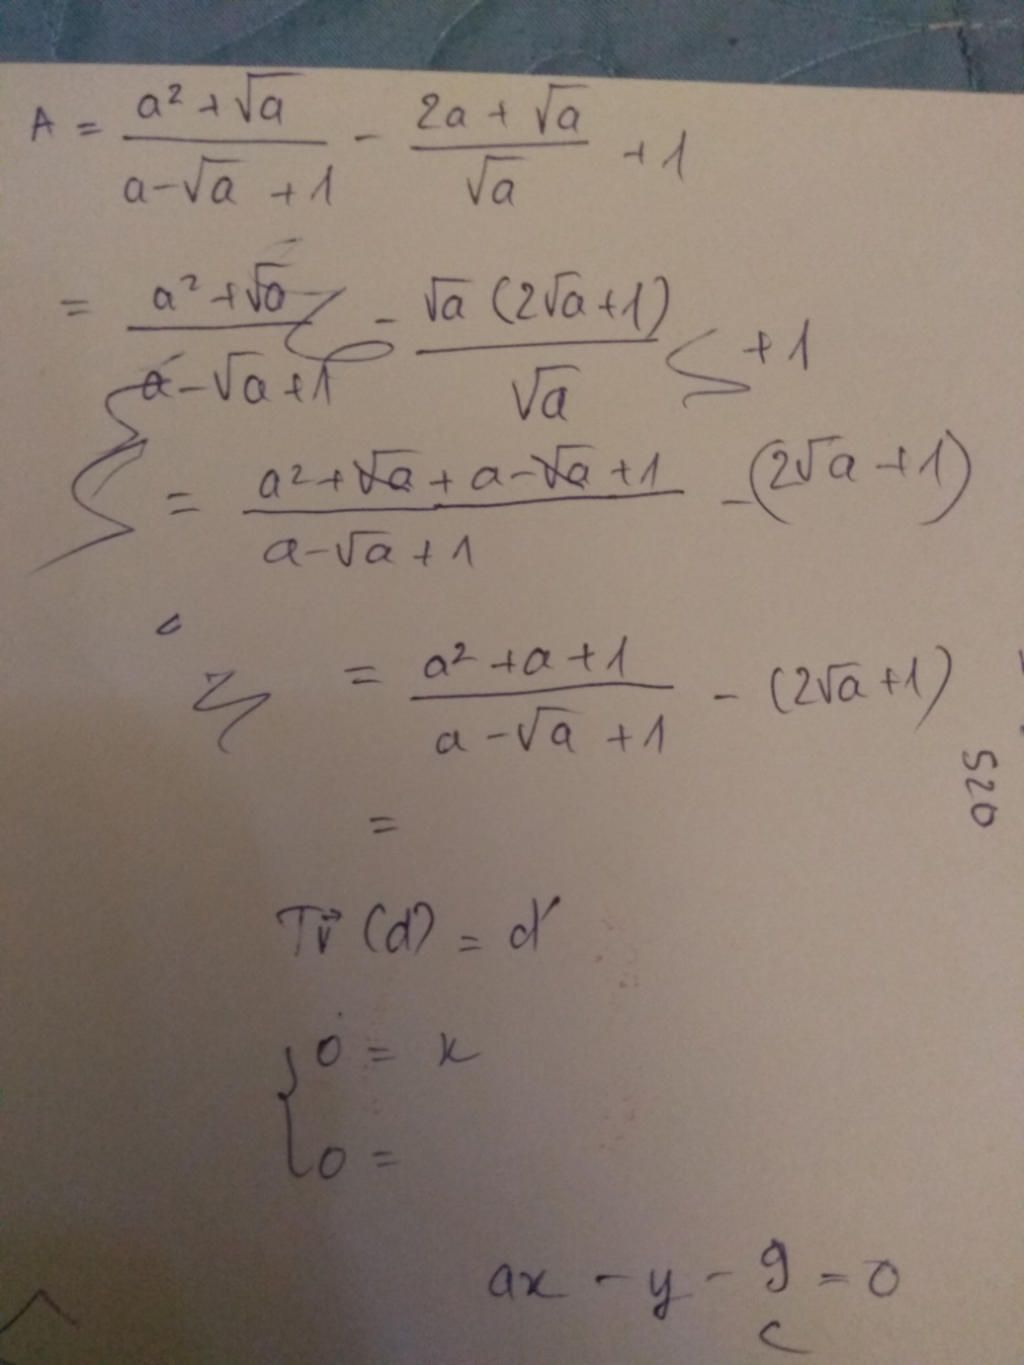 A = \frac{a² + √a}{a - √a + 1} - \frac{2a + √a}{√a} + 1
= \frac{a² + √a}{a - √a + 1} - \frac{√a (2√a + 1)}{√a} + 1
= \frac{a² + √a + a - √a + 1}{a - √a + 1} - (2√a + 1)
= \frac{a² + a + 1}{a - √a + 1} - (2√a + 1)
520
=
T\vec{v} (d) = d'
{ 0 = x
0 =
ax - y - 9 = 0
c